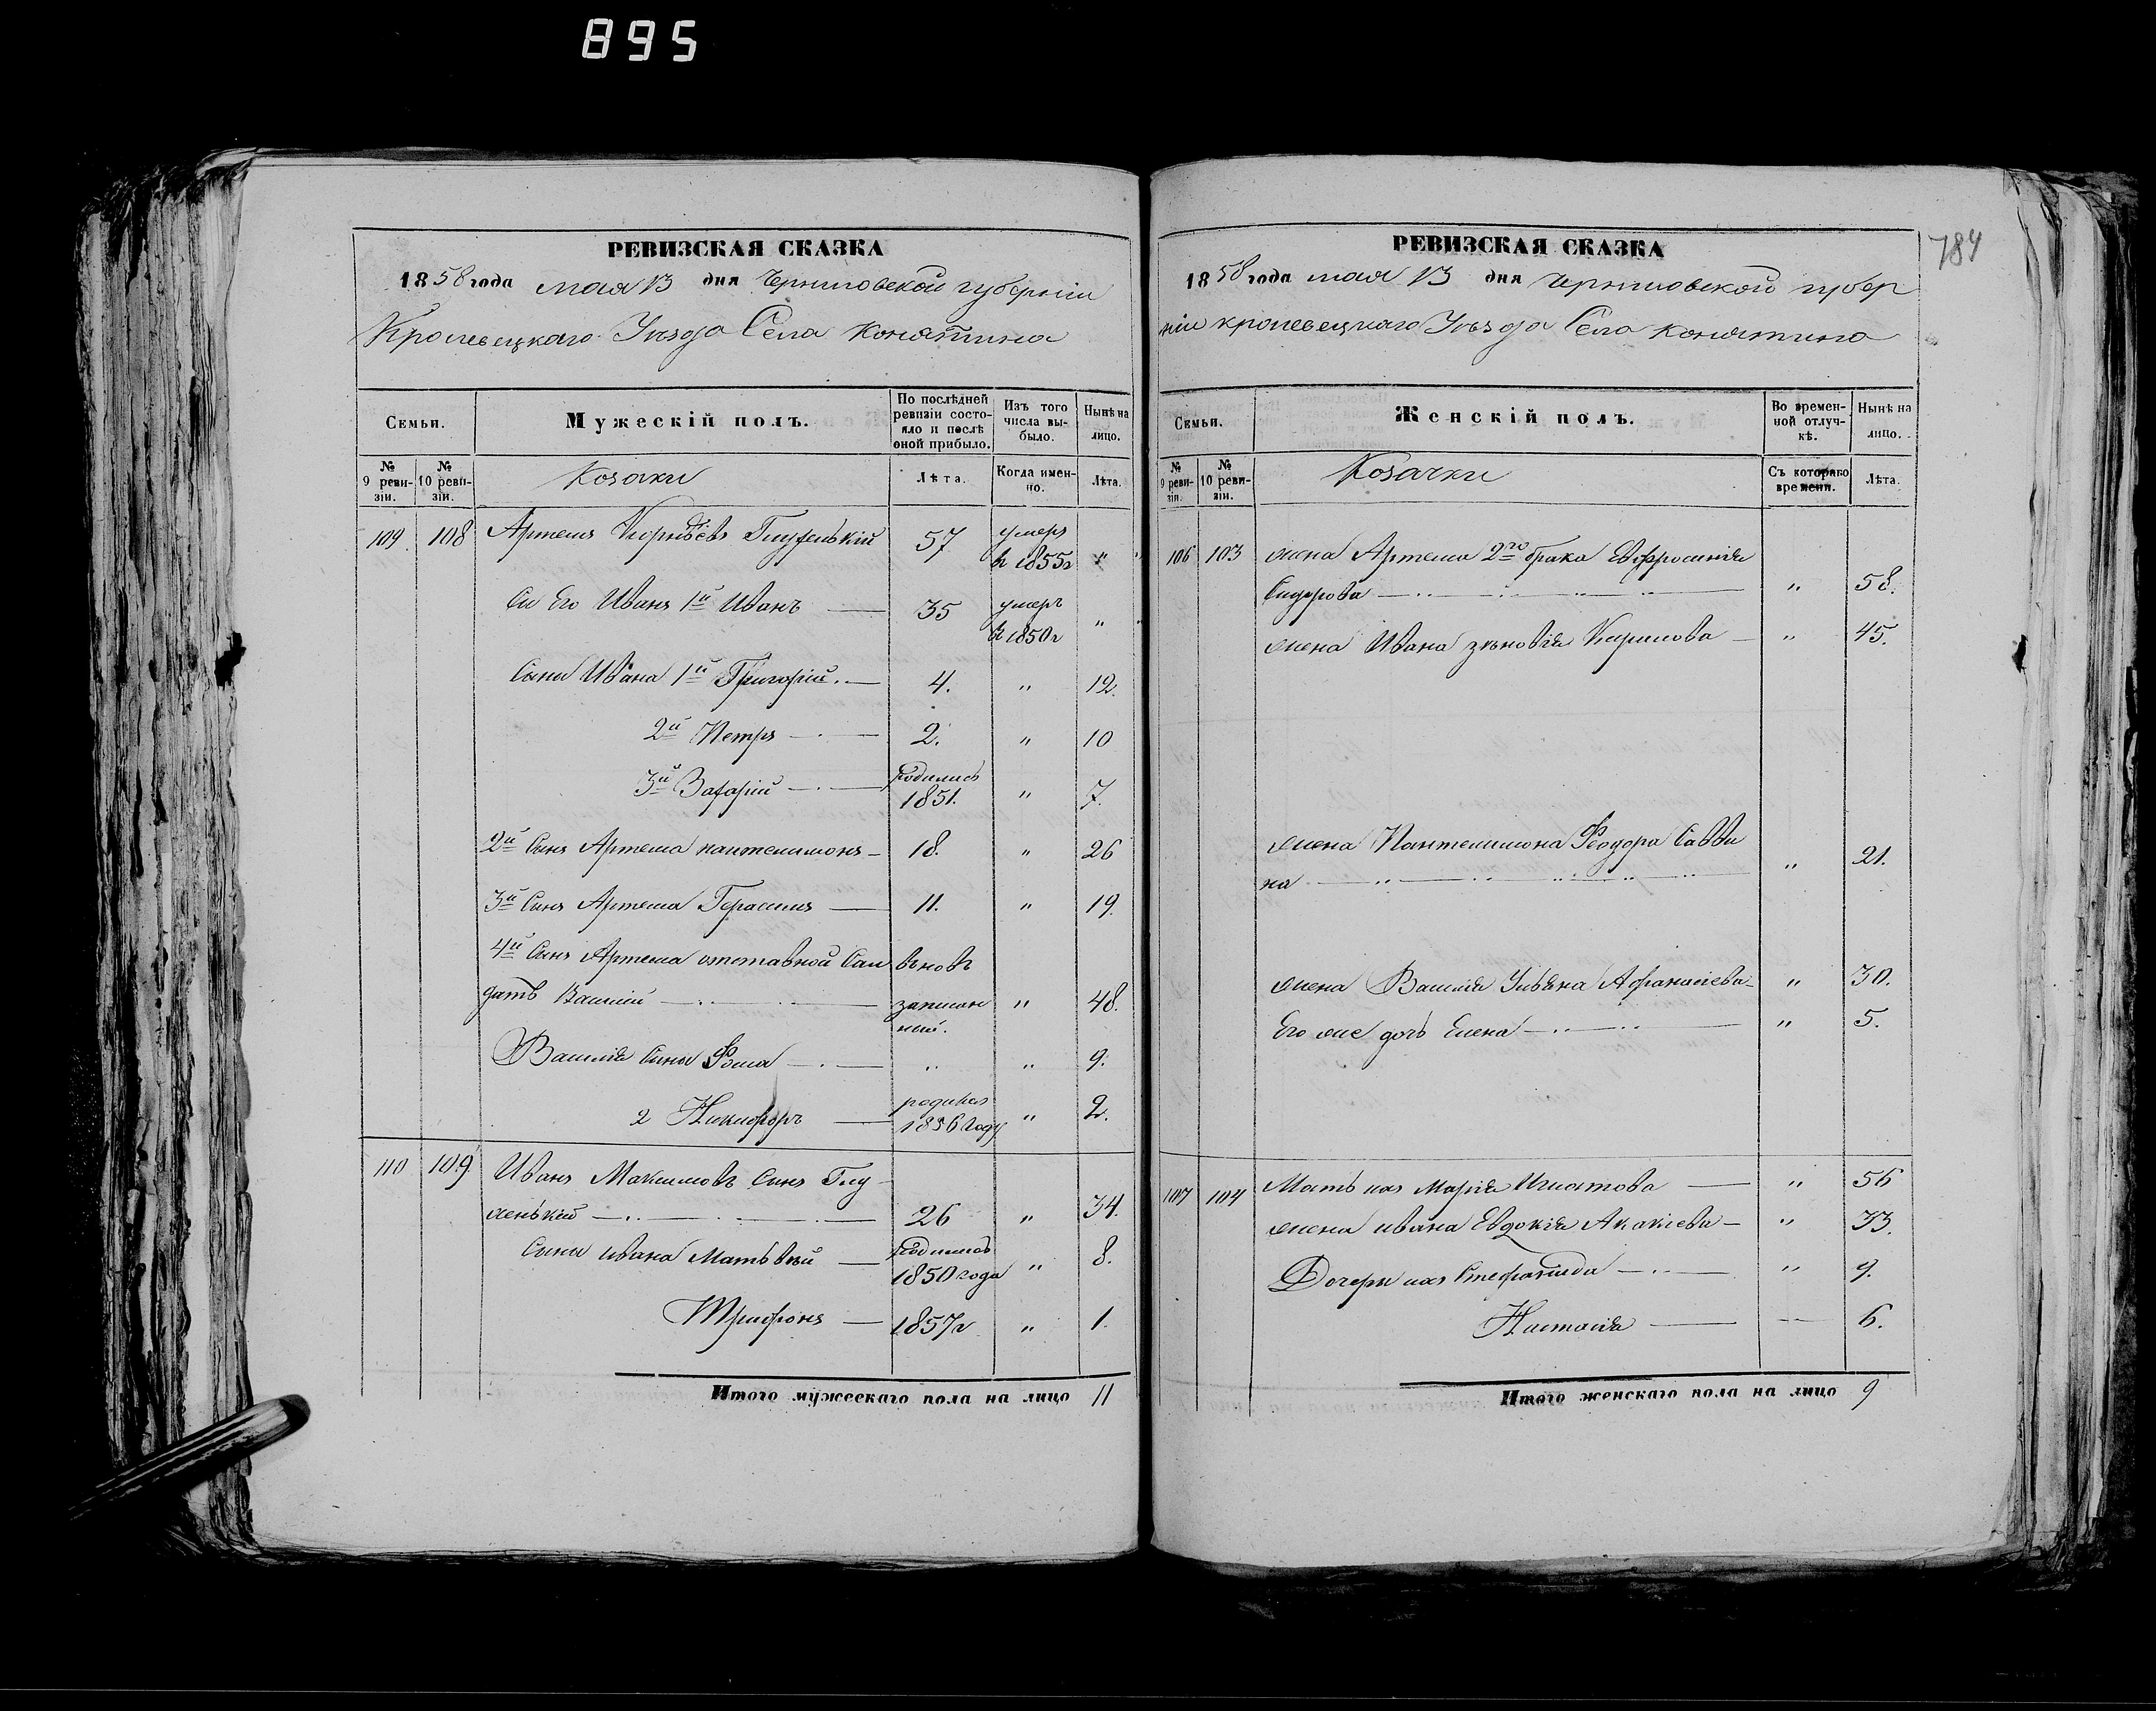 895
РЕВИЗСКАЯ СКАЗКА
1858 года мая 13 дня Черниговской губерніи
Кролевецкаго Уѣзда Села Конятина
Семьи.
Мужескій полъ.
По послѣдней ревизіи состояло и послѣ оной прибыло.
Изъ того числа выбыло.
Нынѣ на лицо.
№ 9 ревизіи.
№ 10 ревизіи.
Козаки
Лѣта.
Когда именно.
Лѣта.
109. 108 Артемъ Корнѣевъ 57 умеръ в 1855г "
Сн Его Иванъ 1й Иванъ 35 умеръ в 1850г "
Сыны Ивана 1й Григорій 4. " 12.
2й Петръ 2. " 10
3й Захарій родился 1851. " 7.
2й Сынъ Артема пантелимонъ 18. " 26
3й Сынъ Артема Герасимъ 11. " 19.
4й Сынъ Артема отставной Сал вѣновъ
датъ Василій записан ный. " 48.
Василія Сыны Фома " " 9.
2 Никифоръ родился 1856 году " 2.
110 109 Иванъ Максимовъ Сынъ Глу
хенькій 26 " 34.
Сыны ивана Матьвѣй родился 1850 года " 8.
Трифонъ 1857г " 1.
Итого мужескаго пола на лицо 11
784
РЕВИЗСКАЯ СКАЗКА
1858 года мая 13 дня Черниговской губер
ніи кролевецкаго Уѣзда Села Конятина
Семьи.
Женскій полъ.
Во временной отлучкѣ.
Нынѣ на лицо.
№ 9 ревизіи.
№ 10 ревизіи.
Козачки
Съ котораго времени.
Лѣта.
106 103 жена Артема 2го брака Евфросинія
Сидорова " 58.
жена Ивана зѣновія Кирилова " 45.
жена Пантелимона Феодора Савви
на " 21.
жена Василія Ульяна Афанасіева " 30.
Его же дочь Елена " 5.
107 104 Мать их Марія Игнатова " 56
жена ивана Евдокія Акакіева " 33.
Дочери их Стефанида " 9.
Настасія 6.
Итого женскаго пола на лицо 9